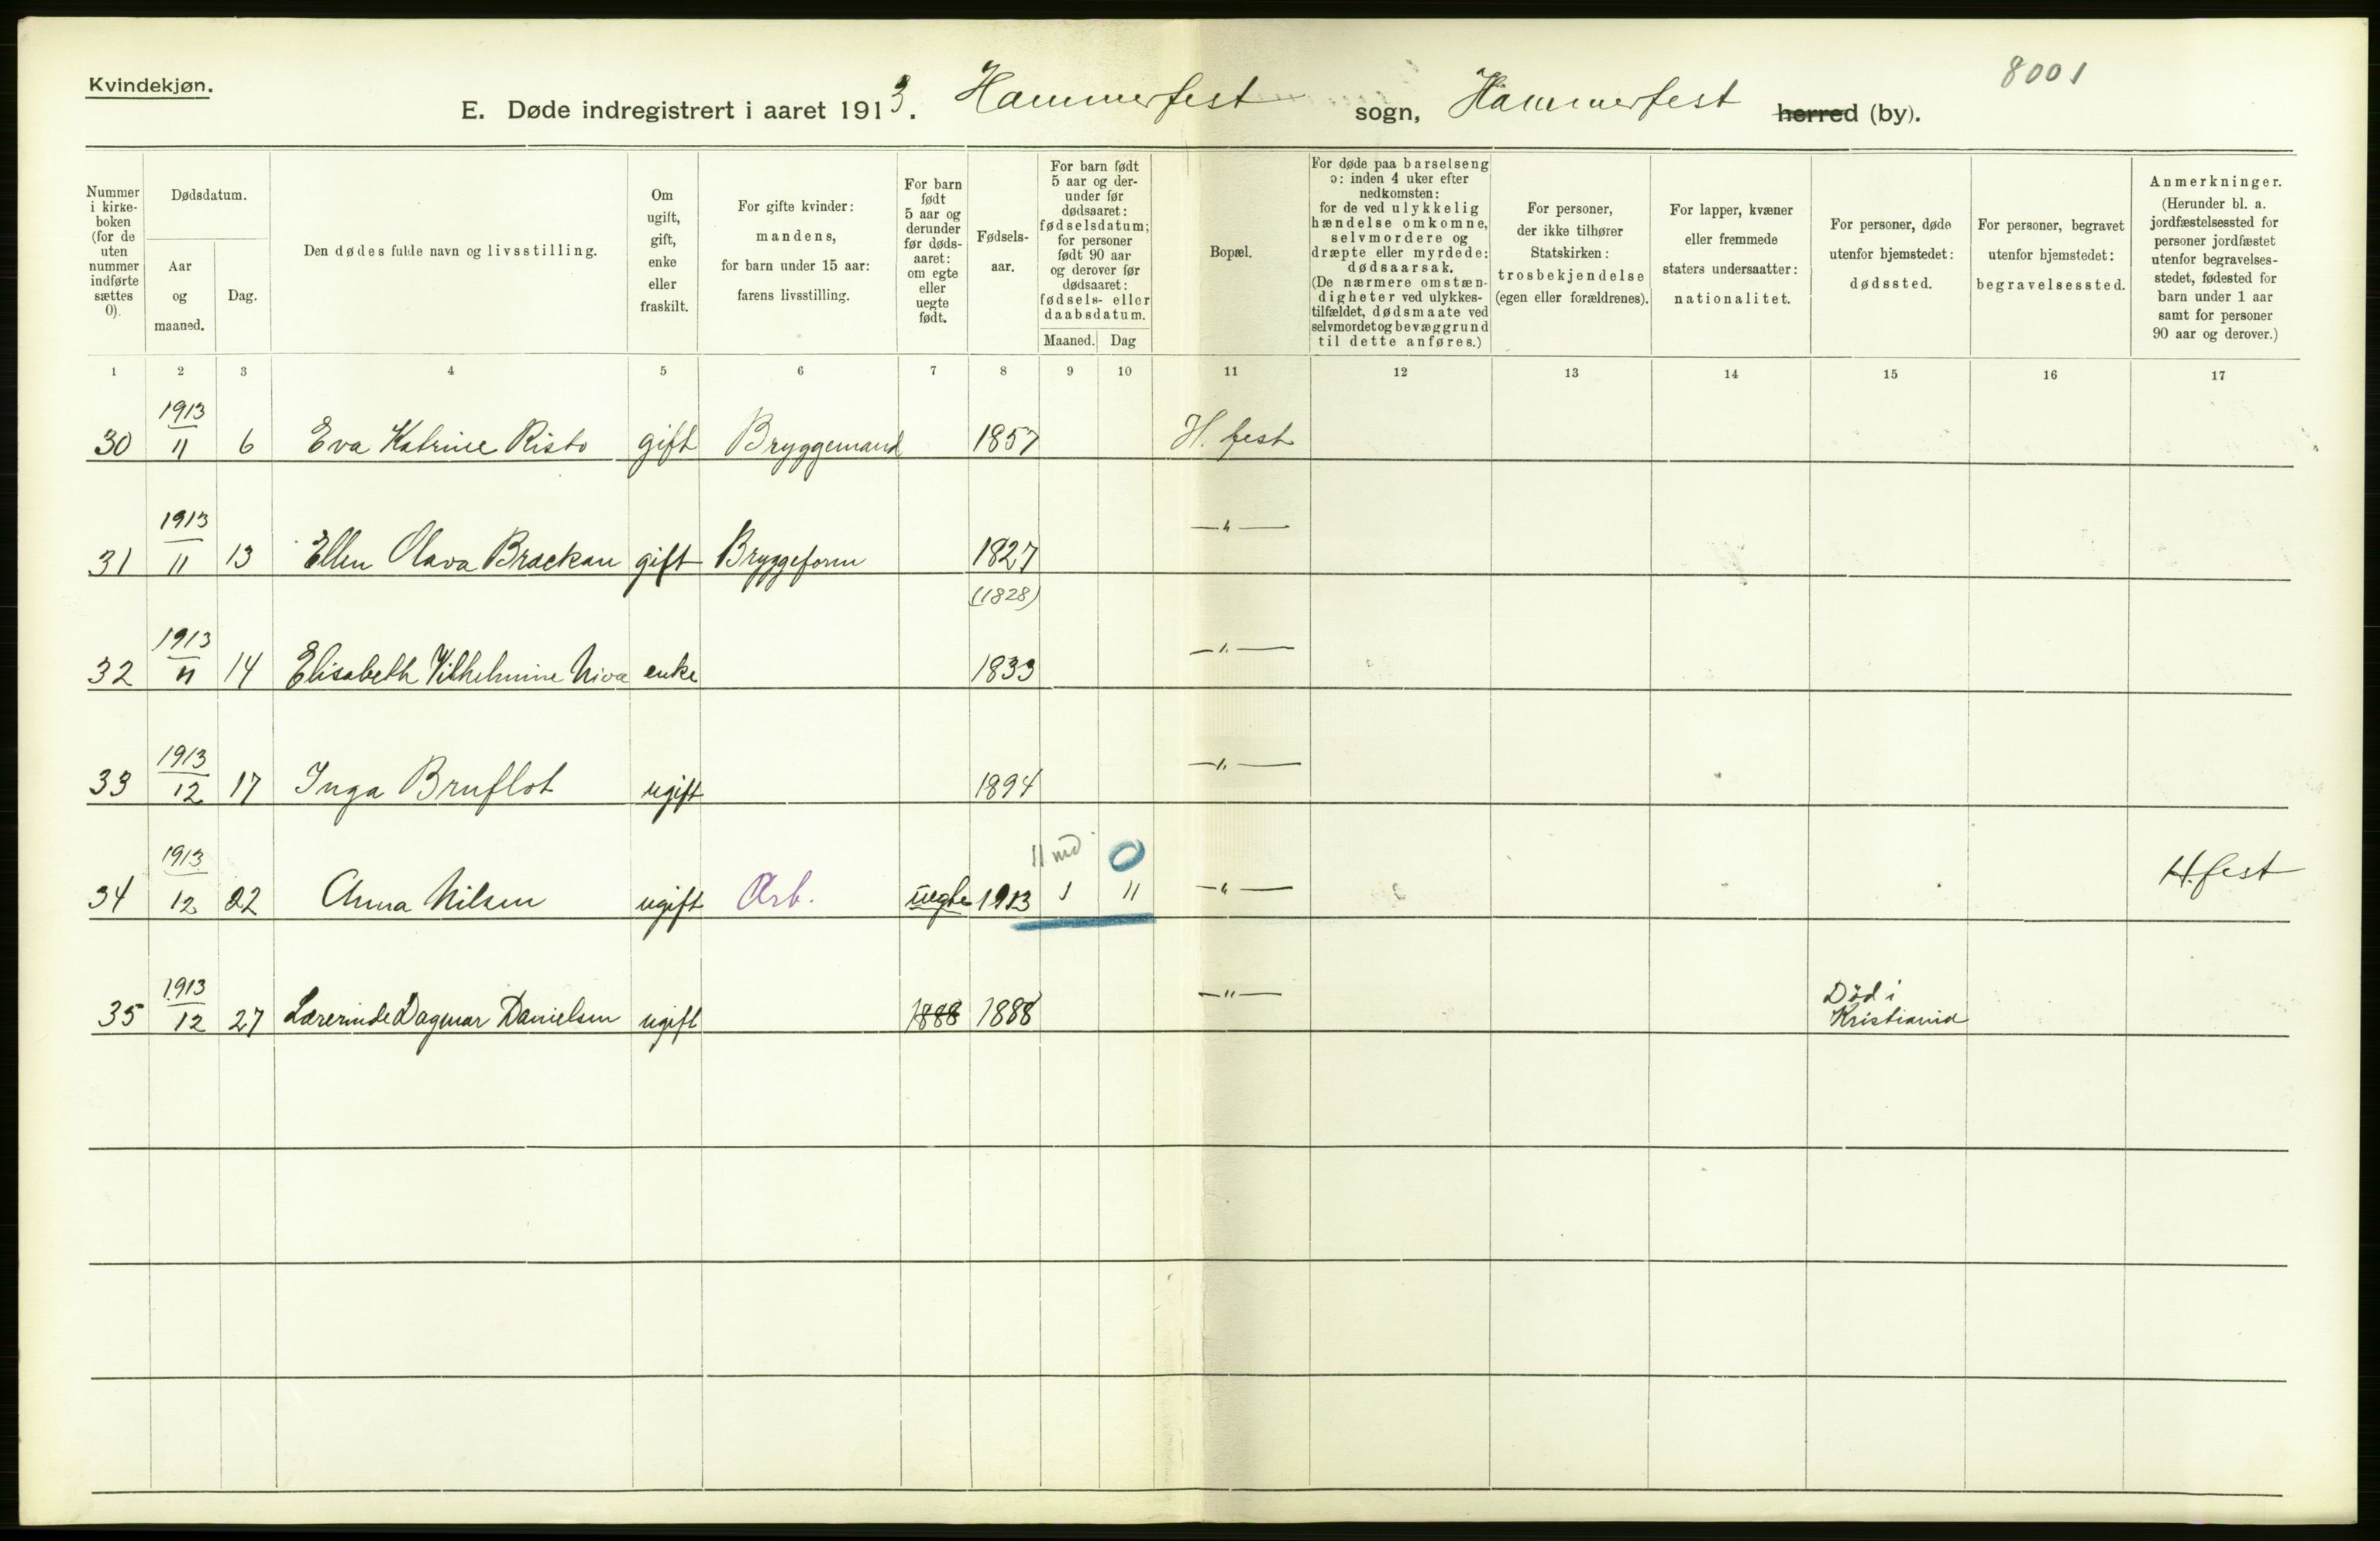 Kvindekjøn.
8001
E. Døde indregistrert i aaret 1913. Hammerfest sogn, Hammerfest herred (by).
Nummer i kirke- boken (for de uten nummer indførte sættes 0).
Dødsdatum.
Aar og maaned.
Dag.
Den dødes fulde navn og livsstilling.
Om ugift, gift, enke eller fraskilt.
For gifte kvinder: mandens, for barn under 15 aar: farens livsstilling.
For barn født 5 aar og derunder før døds- aaret: om egte eller uegte født.
Fødsels- aar.
For barn født 5 aar og der- under før dødsaaret: fødselsdatum; for personer født 90 aar og derover før dødsaaret: fødsels- eller daabsdatum.
Maaned. Dag
Bopæl.
For døde paa barselseng ɔ: inden 4 uker efter nedkomsten: for de ved ulykkelig hændelse omkomne, selvmordere og dræpte eller myrdede: dødsaarsak. (De nærmere omstæn- digheter ved ulykkes- tilfældet, dødsmaate ved selvmordet og bevæggrund til dette anføres.)
For personer, der ikke tilhører Statskirken: trosbekjendelse (egen eller forældrenes).
For lapper, kvæner eller fremmede staters undersaatter: nationalitet.
For personer, døde utenfor hjemstedet: dødssted.
For personer, begravet utenfor hjemstedet: begravelsessted.
Anmerkninger. (Herunder bl. a. jordfæstelsessted for personer jordfæstet utenfor begravelses- stedet, fødested for barn under 1 aar samt for personer 90 aar og derover.)
1 2 3 4 5 6 7 8 9 10 11 12 13 14 15 16 17
30 1913 11 6 Eva Katrine Risto gift Bryggemand 1857 H. fest
31 1913 11 13 Ellen Olava Brackan gift Bryggeform 1827 —"—
(1828)
32 1913 11 14 Elisabeth Vilhelmine Niva enke 1833 —"—
33 1913 12 17 Inga Bruflot ugift 1894 —"—
11 md 0
34 1913 12 22 Anna Nilsen ugift Arb. uegte 1913 1 11 —"— H.fest
35 1913 12 27 Lærerinde Dagmar Danielsen ugift 1888 1888 —"— Død i
Kristiania